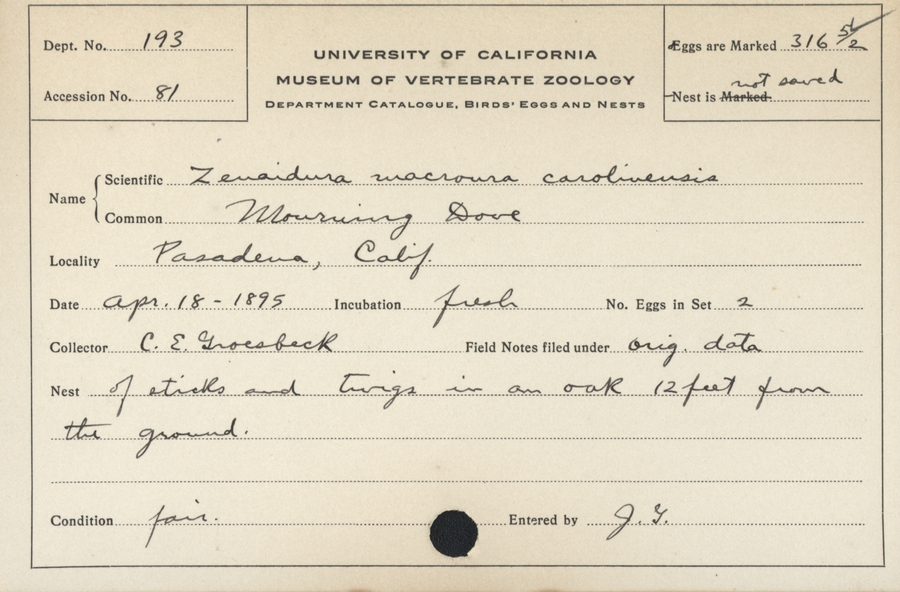 Dept. No. 193
Accession No. 81
UNIVERSITY OF CALIFORNIA
MUSEUM OF VERTEBRATE ZOOLOGY
DEPARTMENT CATALOGUE, BIRDS' EGGS AND NESTS
Eggs are Marked 316 5½/2
not saved
Nest is Marked
Name
Scientific Zenaidura macroura carolinensis
Common Mourning Dove
Locality Pasadena, Calif.
Date Apr. 18 - 1895 Incubation fresh No. Eggs in Set 2
Collector C. E. Groesbeck Field Notes filed under orig. data
Nest of sticks and twigs in an oak 12 feet from
the ground.
Condition fair. Entered by J. G.